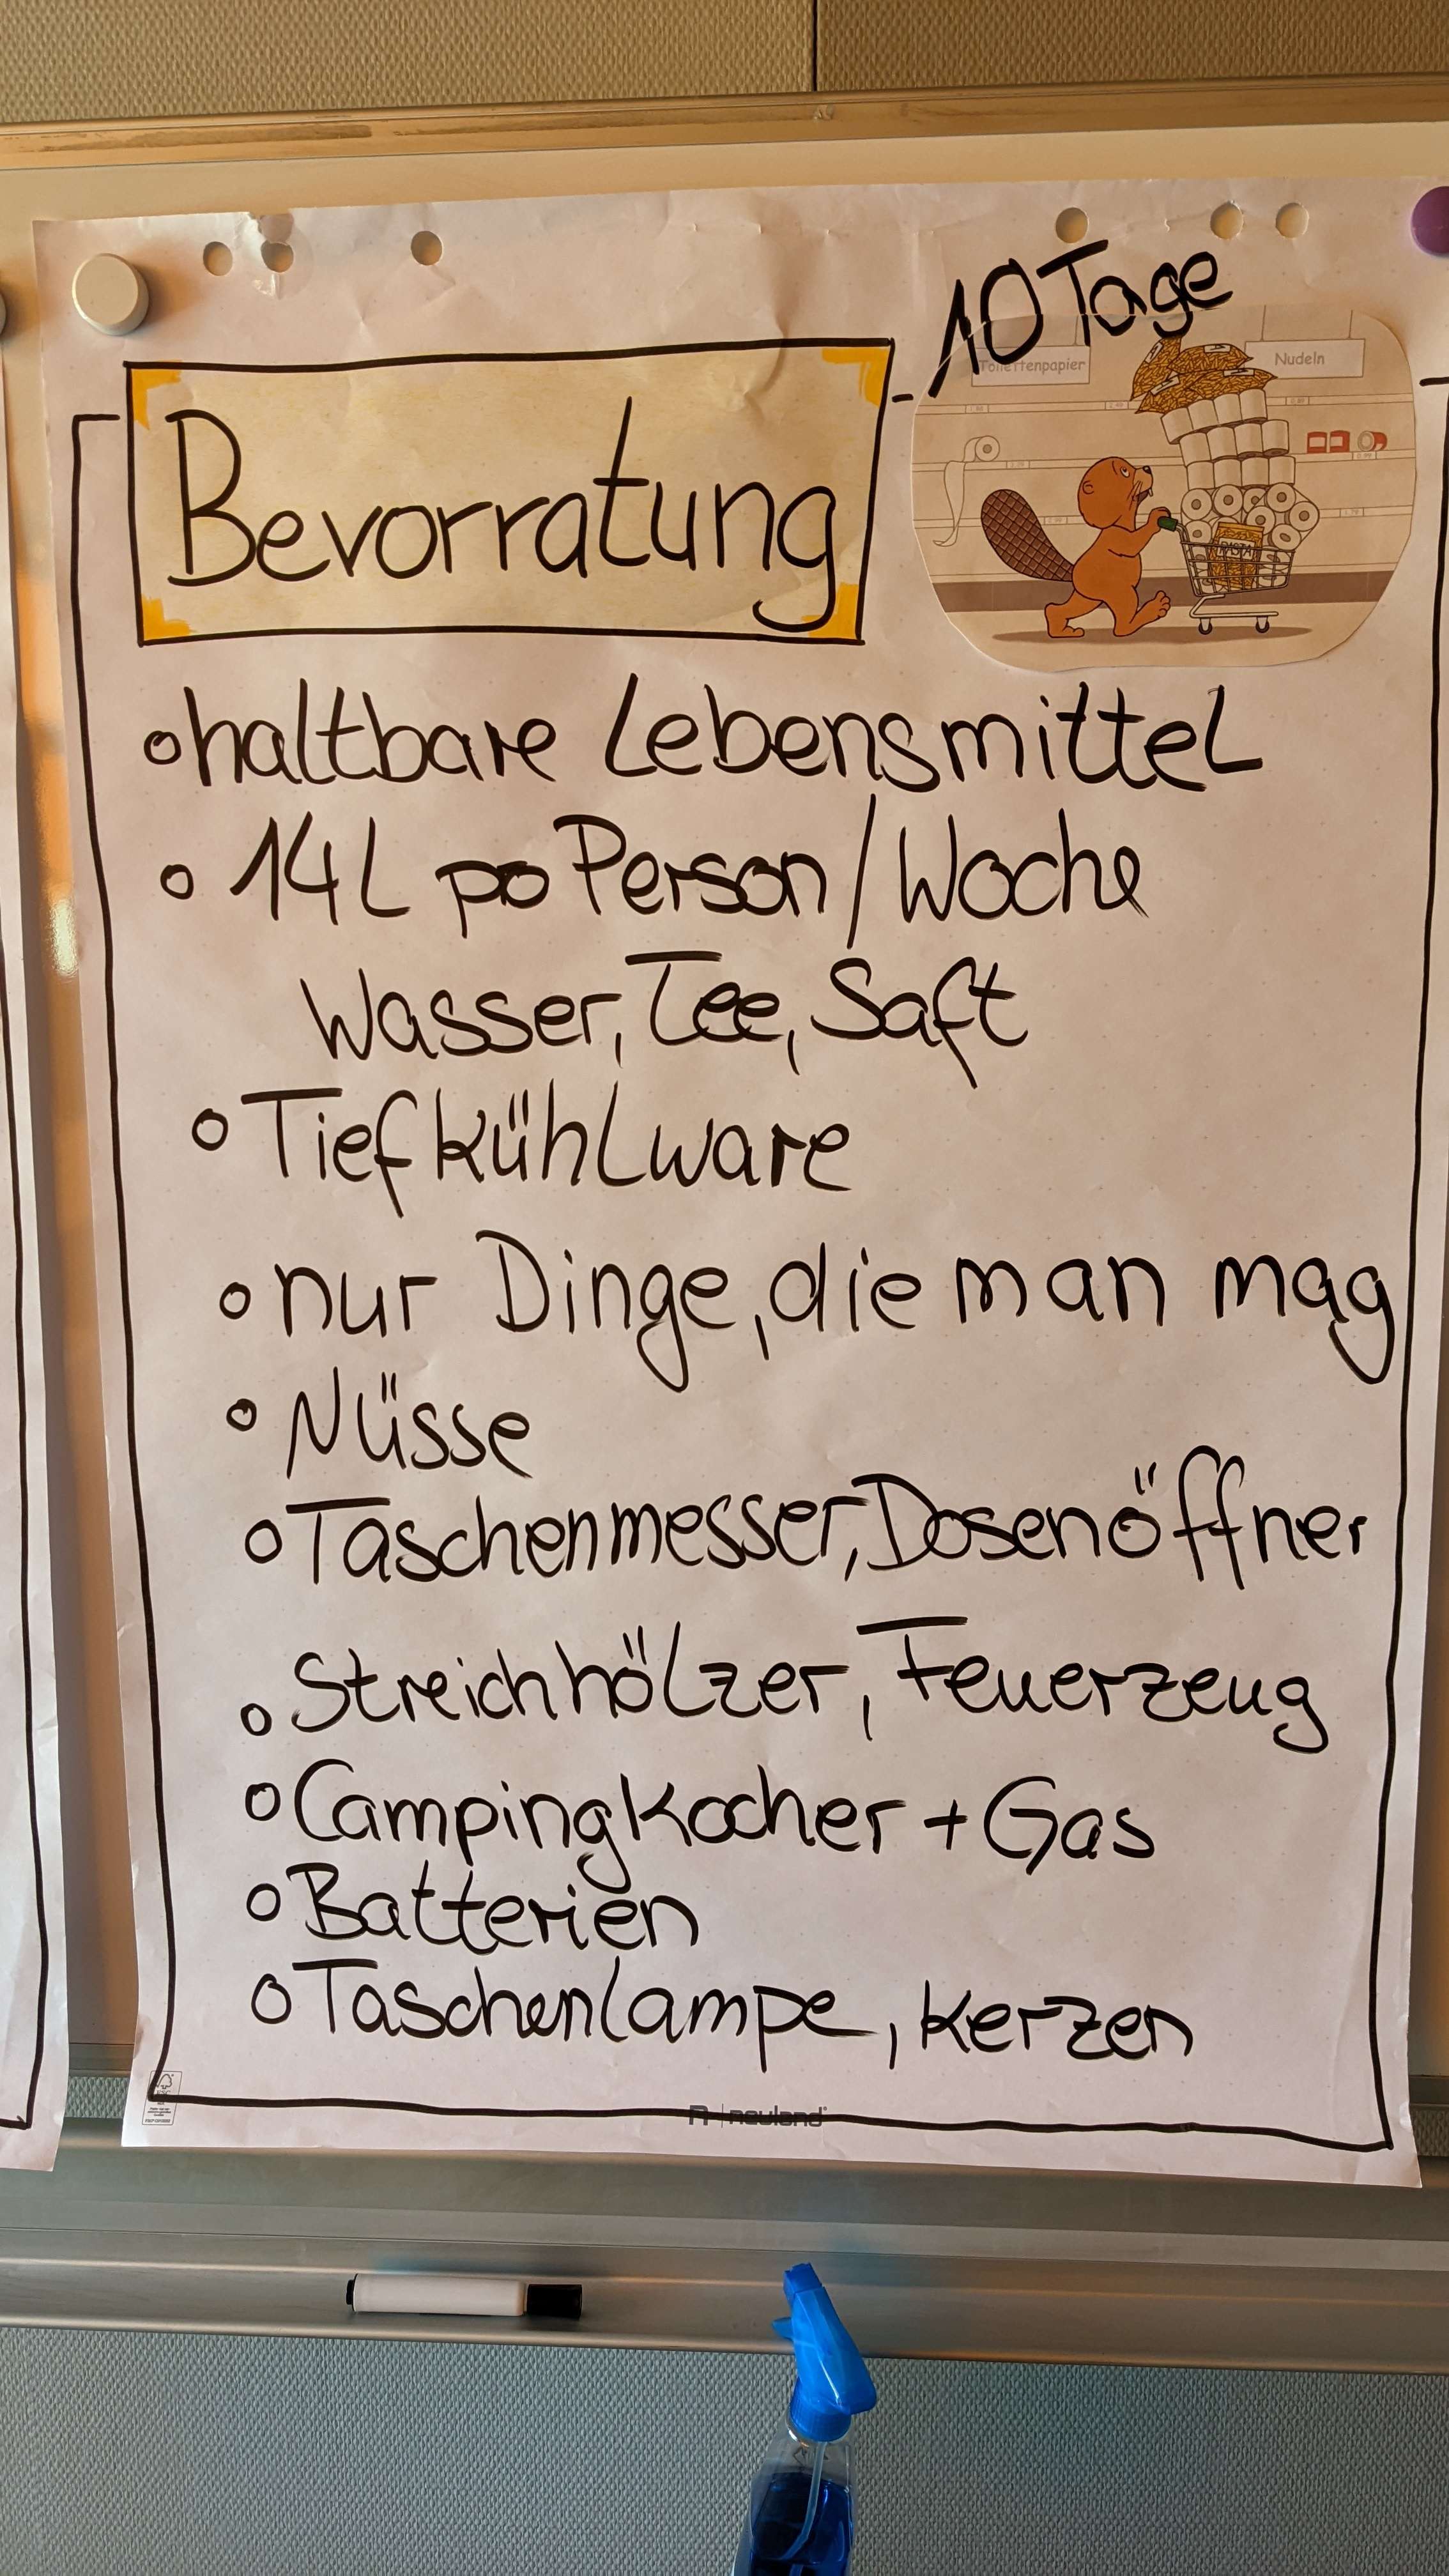 10 Tage
Toilettenpapier
Nudeln
Bevorratung
PASTA
o haltbare Lebensmittel
o 14L pro Person / Woche
Wasser, Tee, Saft
o Tiefkühlware
o nur Dinge, die man mag
o Nüsse
o Taschenmesser, Dosenöffner
o Streichhölzer, Feuerzeug
o Campingkocher + Gas
o Batterien
o Taschenlampe, Kerzen
neuland